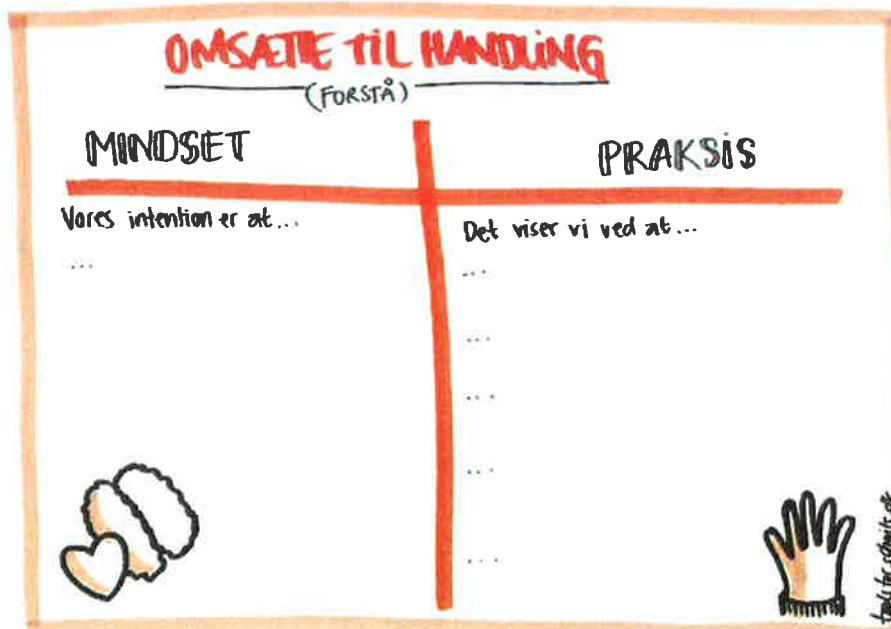 OMSÆTTE TIL HANDLING
(FORSTÅ)
MINDSET
PRAKSIS
Vores intention er at...
...
Det viser vi ved at...
...
...
...
...
...